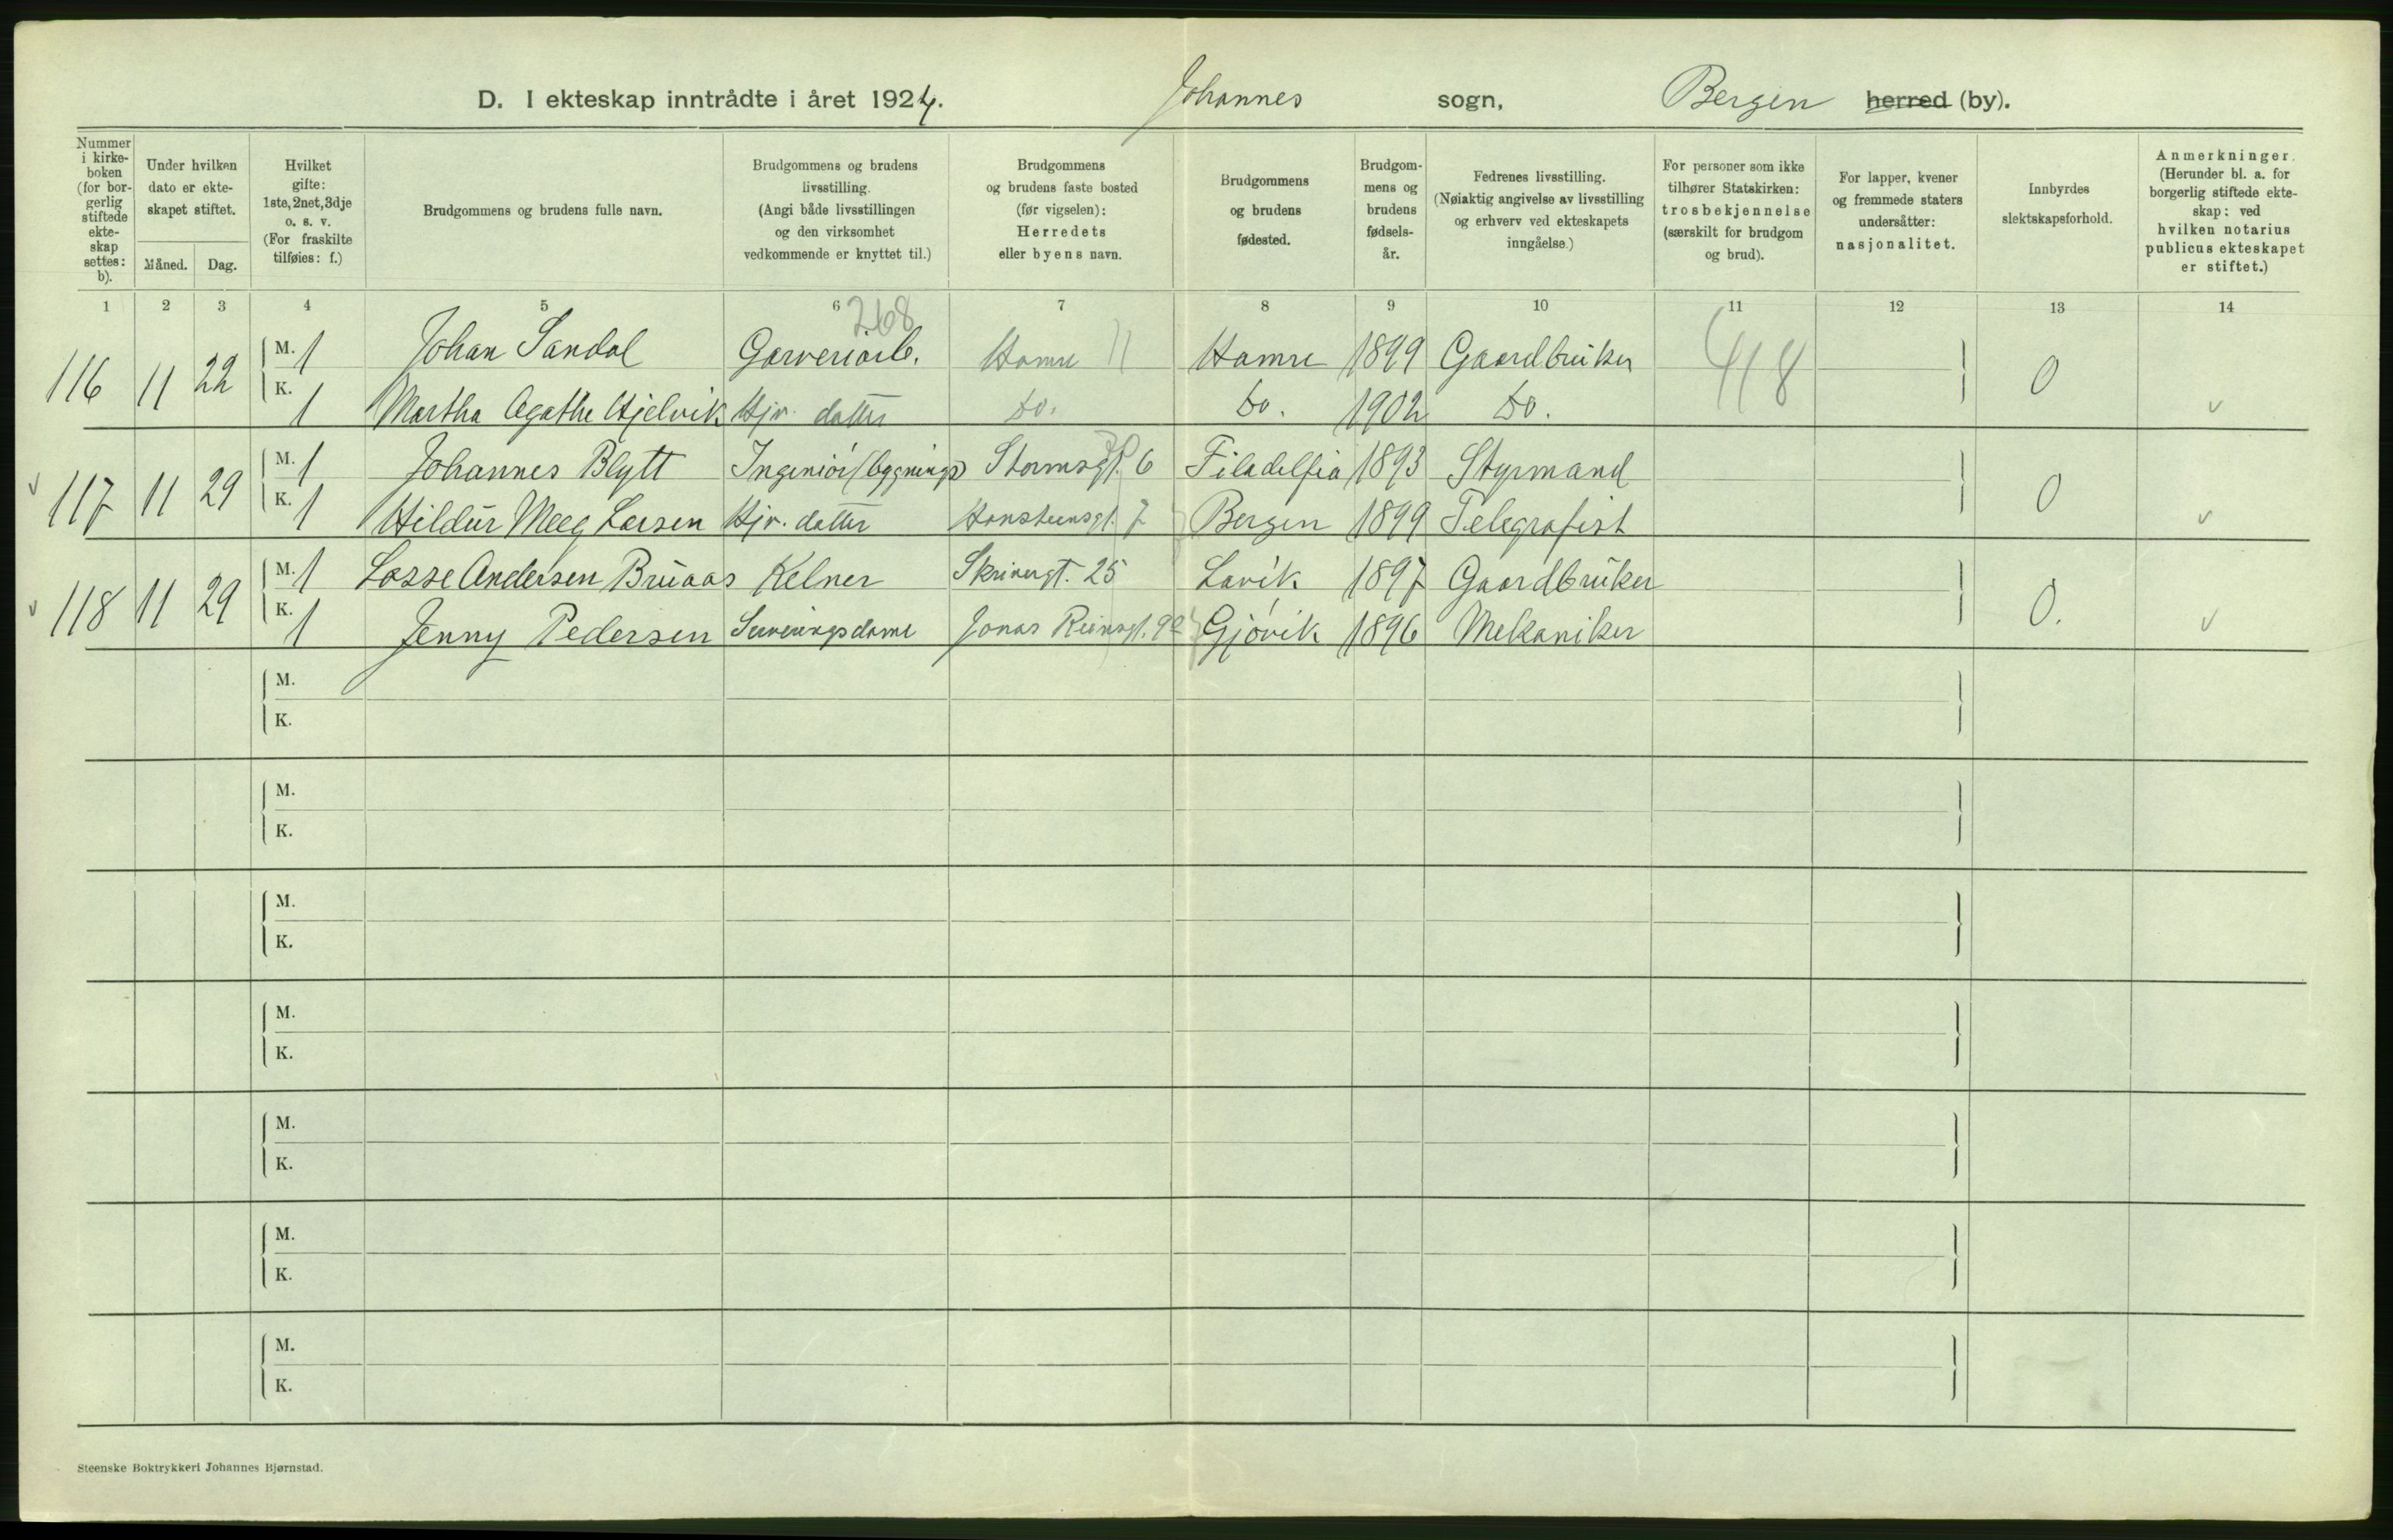 D. I ekteskap inntrådte i året 1924. Johannes sogn, Bergen herred (by).
Nummer i kirke-boken (for bor-gerlig stiftede ekte-skap settes: b).
Under hvilken dato er ekte-skapet stiftet.
Måned. Dag.
Hvilket gifte: 1ste, 2net, 3dje o. s. v. (For fraskilte tilføies: f.)
Brudgommens og brudens fulle navn.
Brudgommens og brudens livsstilling. (Angi både livsstillingen og den virksomhet vedkommende er knyttet til.)
Brudgommens og brudens faste bosted (før vigselen): Herredets eller byens navn.
Brudgommens og brudens fødested.
Brudgom-mens og brudens fødsels-år.
Fedrenes livsstilling. (Nøiaktig angivelse av livsstilling og erhverv ved ekteskapets inngåelse.)
For personer som ikke tilhører Statskirken: trosbekjennelse (særskilt for brudgom og brud).
For lapper, kvener og fremmede staters undersåtter: nasjonalitet.
Innbyrdes slektskapsforhold.
Anmerkninger. (Herunder bl. a. for borgerlig stiftede ekte-skap: ved hvilken notarius publicus ekteskapet er stiftet.)
1 2 3 4 5 6 7 8 9 10 11 12 13 14
268
116 11 22 M. 1 Johan Sandal Garveriarb. Hamre 11 Hamre 1899 Gaardbruker 418 0
K. 1 Martha Agathe Hjelvik Hjv. datter do. do. 1902 do. v
v 117 11 29 M. 1 Johannes Blytt Ingeniör (bygnings) Stormsgt. 6 Filadelfia 1893 Styrmand 0
K. 1 Hildur Meeg Larsen Hjv. datter Hansteensgt. 7 Bergen 1899 Telegrafist v
v 118 11 29 M. 1 Lasse Andersen Bruaas Kelner Skivergt. 25 Lavik 1897 Gaardbruker 0.
K. 1 Jenny Pedersen Serveringsdame Jonas Reinsgt. Gjövik 1896 Mekaniker v
M.
K.
M.
K.
M.
K.
M.
K.
M.
K.
M.
K.
M.
K.
Steenske Boktrykkeri Johannes Bjørnstad.